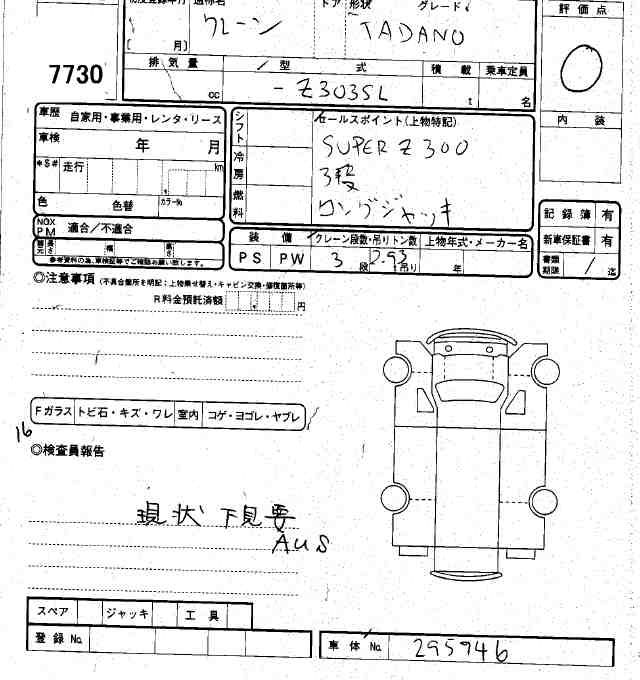 初度登録年月 通称名 ドア 形状 グレード 評価点
クレーン TADANO
[ 月]
7730
排気量 型式 積載 乗車定員
cc -Z303SL t 名
内装
車歴 自家用・事業用・レンタ・リース
シフト セールスポイント(上物特記)
車検 年 月
SUPER Z 300
*S# 走行 km
冷房 3段
色 色替 カラーNo.
燃料 ロングジャッキ
記録簿 有
NOX PM 適合/不適合
新車保証書 有
長さ 幅 高さ
装備 クレーン段数・吊りトン数 上物年式・メーカー名
参考資料の為、車検証等でご確認お願い致します。
PS PW 3段 2.93t吊り 年
書類期限 / 迄
◎注意事項 (不具合箇所を明記:上物乗せ替え・キャビン交換・修復箇所等)
R料金預託済額 円
Fガラス トビ石・キズ・ワレ 室内 コゲ・ヨゴレ・ヤブレ
16
◎検査員報告
現状 下見要
AUS
スペア ジャッキ 工具
登録 No. 車体 No. 295946